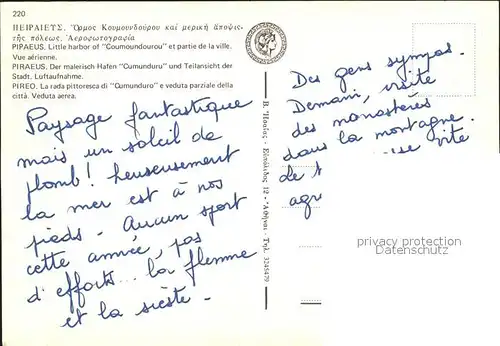 220
ΠΕΙΡΑΙΕΥΣ. Ὅρμος Κουμουνδούρου καί μερική ἄποψις
τῆς πόλεως. Ἀεροφωτογραφία
PIPAEUS. Little harbor of "Coumoundourou" et partie de la ville.
Vue aérienne.
PIRAEUS. Der malerisch Hafen "Cumunduru" und Teilansicht der
Stadt. Luftaufnahme.
PIREO. La rada pittoresca di "Cumunduro" e veduta parziale della
città. Veduta aerea.
Paysage fantastique
mais un soleil de
plomb! heureusement
la mer est à nos
pieds - Aucun sport
cette année, pas
d'efforts... la flemme
et la sieste -
Ἀθῆναι. Τηλ. 3245479
Des gens sympas.
Demain, visite
des monastères
dans la montagne.
de t
use vite
agr
privacy protection
Datenschutz